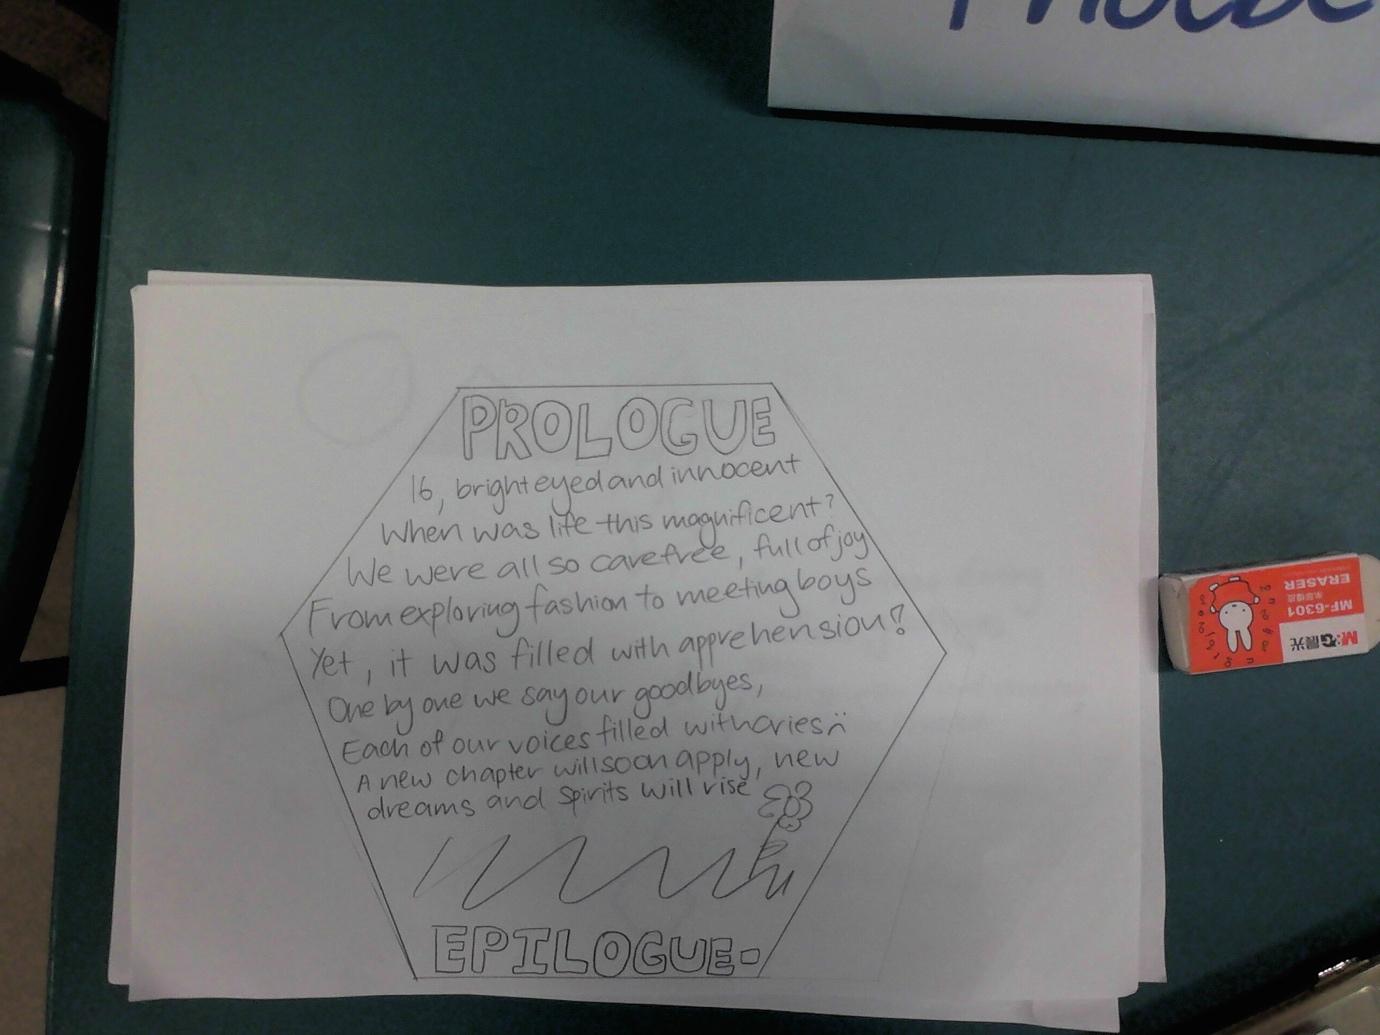 PROLOGUE
16, bright eyed and innocent
When was life this magnificent?
We were all so carefree, full of joy
From exploring fashion to meeting boys
Yet, it was filled with apprehension?
One by one we say our goodbyes,
Each of our voices filled with cries
A new chapter will soon apply, new
dreams and spirits will rise
EPILOGUE-
M&G 晨光
MF-6301
ERASER